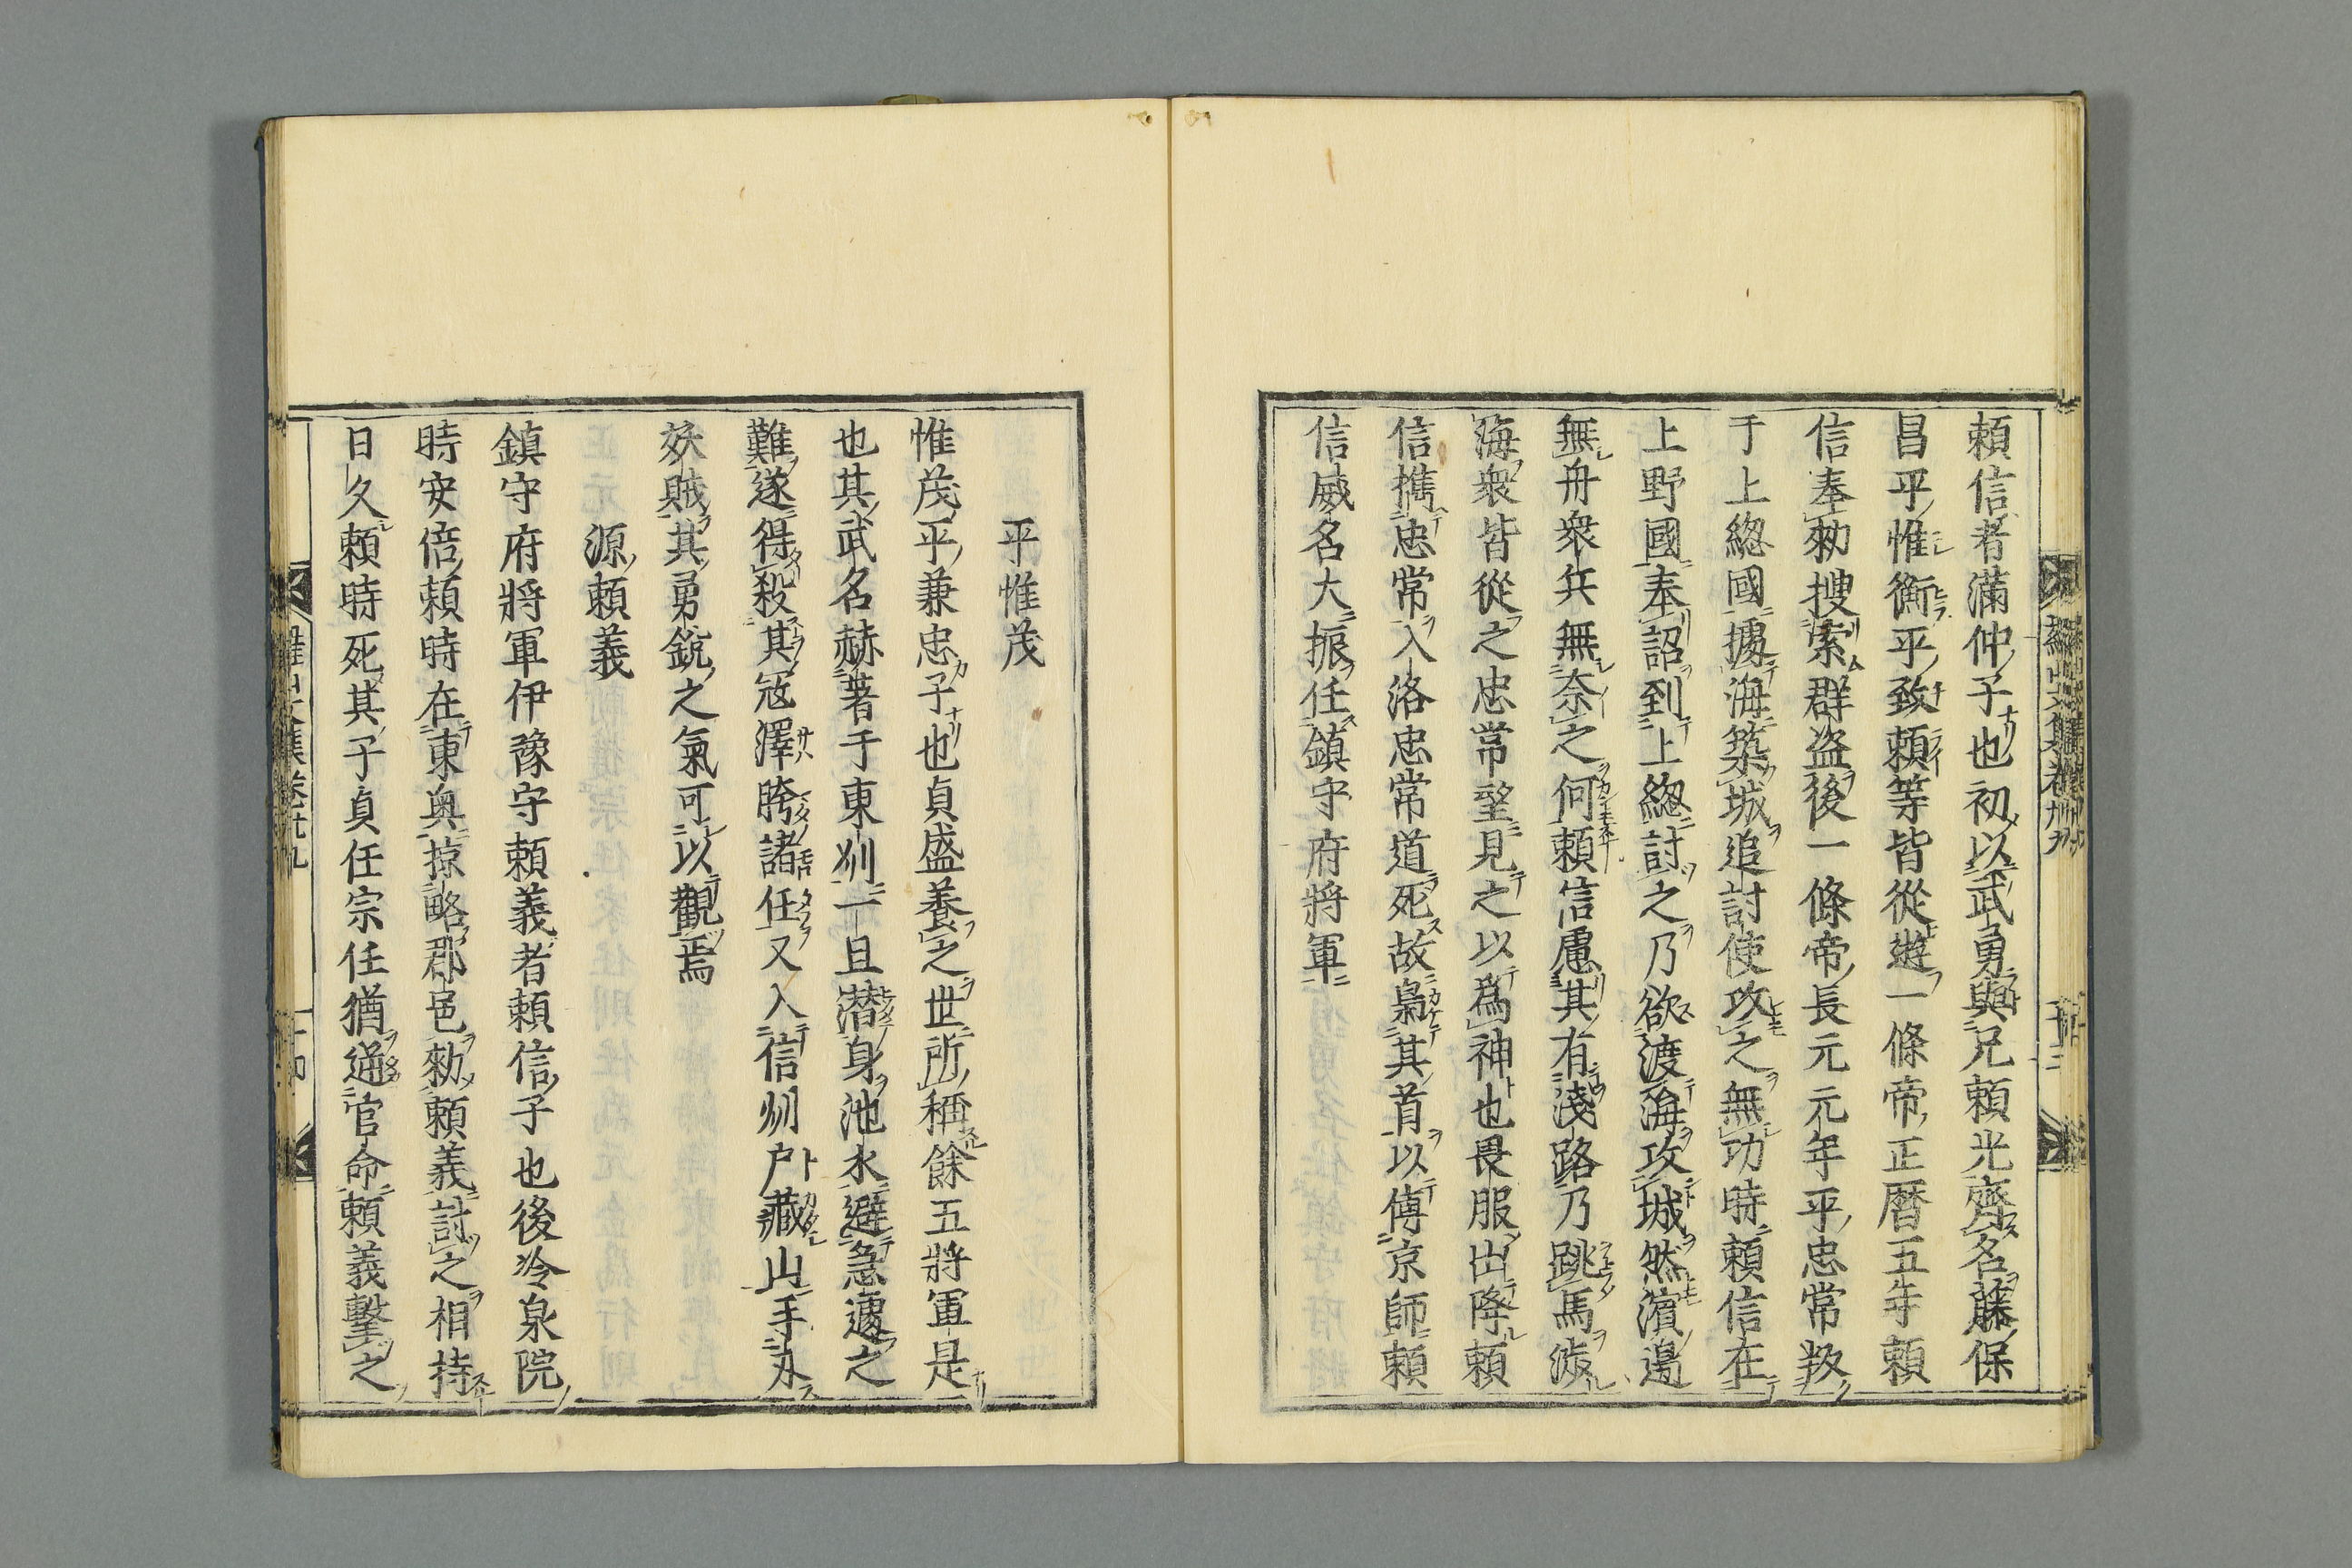 頼信者滿仲子也初以武勇與兄頼光齊名藤保
昌平惟衡平致頼等皆從遊一條帝正暦五年頼
信奉勅搜索群盗後一條帝長元元年平忠常叛
于上緫國據海築城追討使攻之無功時頼信在
上野國奉詔到上緫討之乃欲渡海攻城然濱邉
無舟衆兵無奈之何頼信慮其有淺路乃跳馬渉
海衆皆從之忠常望見之以爲神也畏服出降頼
信携忠常入洛忠常道死故梟其首以傳京師頼
信威名大振任鎮守府將軍
平惟茂
惟茂平兼忠子也貞盛養之世所稱餘五將軍是
也其武名赫著于東州一旦潜身池水避急遽之
難遂得殺其冦澤胯諸任又入信州戸藏山手刃
妖賊其勇銳之氣可以觀焉
源頼義
鎮守府將軍伊豫守頼義者頼信子也後冷泉院
時安倍頼時在東奥掠略郡邑勅頼義討之相持
日久頼時死其子貞任宗任猶逋官命頼義擊之